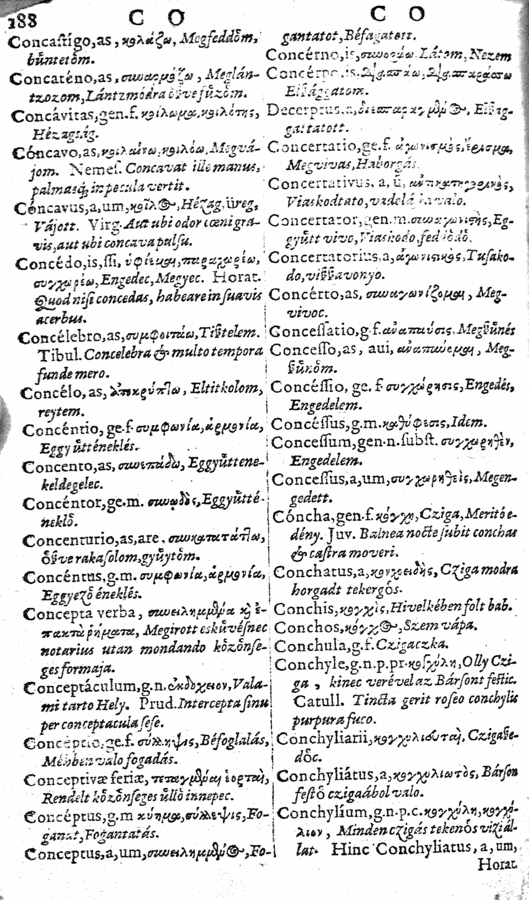 188 C O C O
Concaſtigo,as, κολάζω, Megfeddȍm,
bűntetȍm.
Concaténo,as, συναρμόζω, Meglán-
tzozom, Lántzmódra
Concávitas,gen.f. κοίλωμα, κοιλότης,
Hézagſág.
Cóncavo,as, κοιλαίνω, κοιλόω, Megvá-
jom. Nemeſ. Concavat ille manus,
palmasq́; in specula vertit.
Cóncavus,a,um, κοῖλος, Hézag, űreg,
Vájott. Virg. Aut ubi odor cœni gra-
vis, aut ubi concava pulſu.
Concédo,is,ſſi, ὑφίεμαι, παραχωρέω,
συγχωρέω, Engedec, Megyec. Horat.
Quod niſi concedas, habeare inſuavis
acerbus.
Concélebro,as, συμφοιτάω, Tiſztelem.
Tibul. Concelebra & multo tempora
funde mero.
Concélo,as, ἀποκρύπτω, Eltitkolom,
reytem.
Concéntio,ge.f. συμφωνία, ἁρμονία,
Eggyűtt éneklés.
Concento,as, συνεπάδω, Eggyűttene-
keldegelec.
Concéntor,ge.m. συνῳδὸς, Eggyűtté-
neklȍ.
Concenturio,as,are. συγκατατάττω,
rakaſolom, gyűytȍm.
Concéntus,g.m. συμφωνία, ἁρμονία,
Eggyezȍ éneklés.
Concepta verba, συνειλημμένα κὶ ἐ-
πακτὰ ῥήματα, Megirott eskűvéſnec
notarius utan mondando kȍzȍnſe-
ges formaja.
Conceptáculum,g.n. ἐκδοχειον, Vala-
mi tarto Hely. Prud. Intercepta ſinu
per conceptacula ſeſe.
Conceptio,ge.f. σύλληψις, Béfoglalás,
Méhben valo fogadás.
Conceptivæ feriæ, τεταγμέναι ἑορταὶ,
Rendelt kȍzȍnſeges űllȍ innepec.
Concéptus,g.m κύημα, σύλληψις, Fo-
ganat, Fogantatás.
Conceptus,a,um, συνειλημμένος, Fo-
gantatot, Béfagatott.
Concérno,is, συνοράω. Látom, Nezem
Decerptus,a,
gattatott.
Concertatio,ge.f. ἀγωνισμὸς, ἔρισμα,
Megvivas, Haborgás.
Concertativus, a, ű,
Viaskodtato, valo.
Concertator,gen.m. συναγωνιστὴς, Eg-
gyűtt vivo, Viaskodo,
Concertatorius,a, ἀγωνιστικὸς, Tuſako-
do,
Concérto,as, συναγωνίζομαι, Meg-
vivoc.
Conceſſatio,g.f. ἀνάπαυσις. Megſzűnés
Conceſſo,as, aui, ἀναπαύομαι, Meg-
ſzűnȍm.
Concéſſio, ge. f συγχώρησις, Engedés,
Engedelem.
Concéſſus,g.m. καθύφεσις, Idem.
Conceſſum,gen.n.ſubſt. συγχωρηθὲν,
Engedelem.
Conceſſus,a,um, συγχωρηθεὶς, Megen-
gedett.
Cóncha,gen.f. κόγχη, Cziga, Meritȍ e-
dény. Juv. Balnea nocte ſubit conchas
& caſtra moveri.
Conchatus,a, κογχοειδὴς, Cziga modra
horgadt tekergȍs.
Conchis, κογχὶς, Hivelkében folt bab.
Conchos, κόγχος, Szem vápa.
Conchula,g.f. Czigaczka.
Conchyle,g.n.p.pr. κογχύλη, Olly Czi-
ga, kinec verével az Bárſont feſtic.
Catull. Tincta gerit roſeo conchylis
purpura fuco.
Conchyliarii, κογχυλιευταὶ, Czigaſze-
dȍc.
Conchyliátus,a, κογχυλιωτὸς, Bárſon
feſtȍ czigaábol valo.
Conchylium,g.n.p.c. κογχύλη, κογχύ-
λιον, Minden czigás tekenȍs vizi ál-
lat. Hinc Conchyliatus, a, um,
Horat.